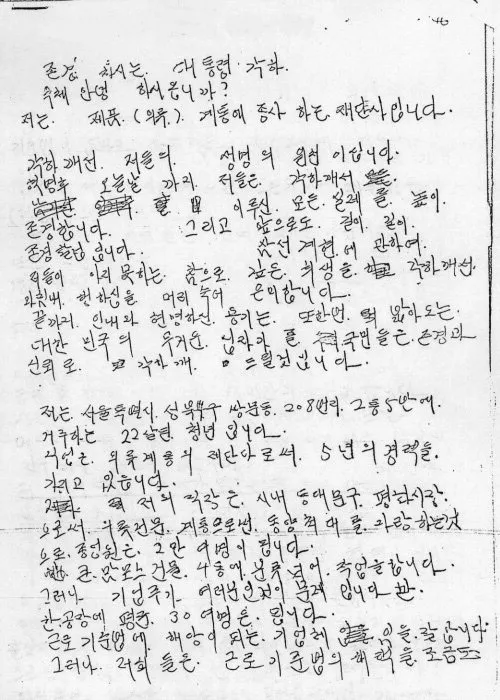 존경하시는. 대통령 각하.
옥체 안녕 하시옵니까?
저는. 제품. (의류). 계통에 종사 하는. 재단사입니다.
각하께선. 저들의. 생명의 원천 이십니다.
혁명후 오늘날 까지 저들은. 각하께서
이루신. 모든. 일레를. 높이.
존경합니다. 그리고 앞으로도. 길이. 길이.
존경할겁니다. 삼선 계헌에 관하여.
저들이 아지 못하는. 참으로. 깊은. 희생을. 각하께선.
마침내. 행하심을. 머리 숙여 은미합니다.
끝까지. 인내와 현명하신. 용기는. 또한번. 밝아오는.
대한 민국의 무거운. 십자가를. 국민들은. 존경과
신뢰로. 각하께. 드릴것입니다.
저는. 서울특별시. 성북구 쌍문동. 208번지. 2통5반에.
거주하는 22살된. 청년입니다.
직업은. 의류계통의 재단사로써. 5년의 경력을.
가지고 있읍니다.
저의 직장은. 시내 동대문구. 평화시장.
으로써. 의류전문. 계통으로썬. 동양 최대를. 자랑하는것
으로 종업원은. 2만 여명이 됩니다.
큰. 맛모스 건물. 4동에 분류되어 작업을합니다.
그러나 기업주가. 여러분인것이 문제입니다만.
한공장에 평균. 30여명은. 됩니다.
근로 기준법에. 해당이 되는. 기업체임을. 잘 압니다.
그러나. 저희들은. 근로기준법의 혜택을. 조금도